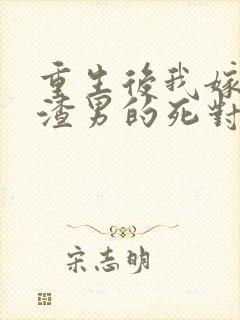 重生後我嫁
渣男的死對
宋志明